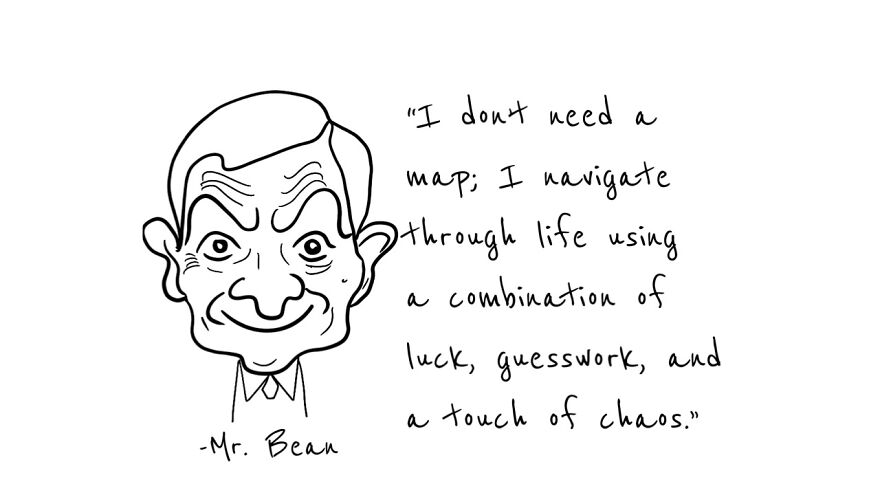 "I don't need a
map; I navigate
through life using
a combination of
luck, guesswork, and
a touch of chaos."
-Mr. Bean